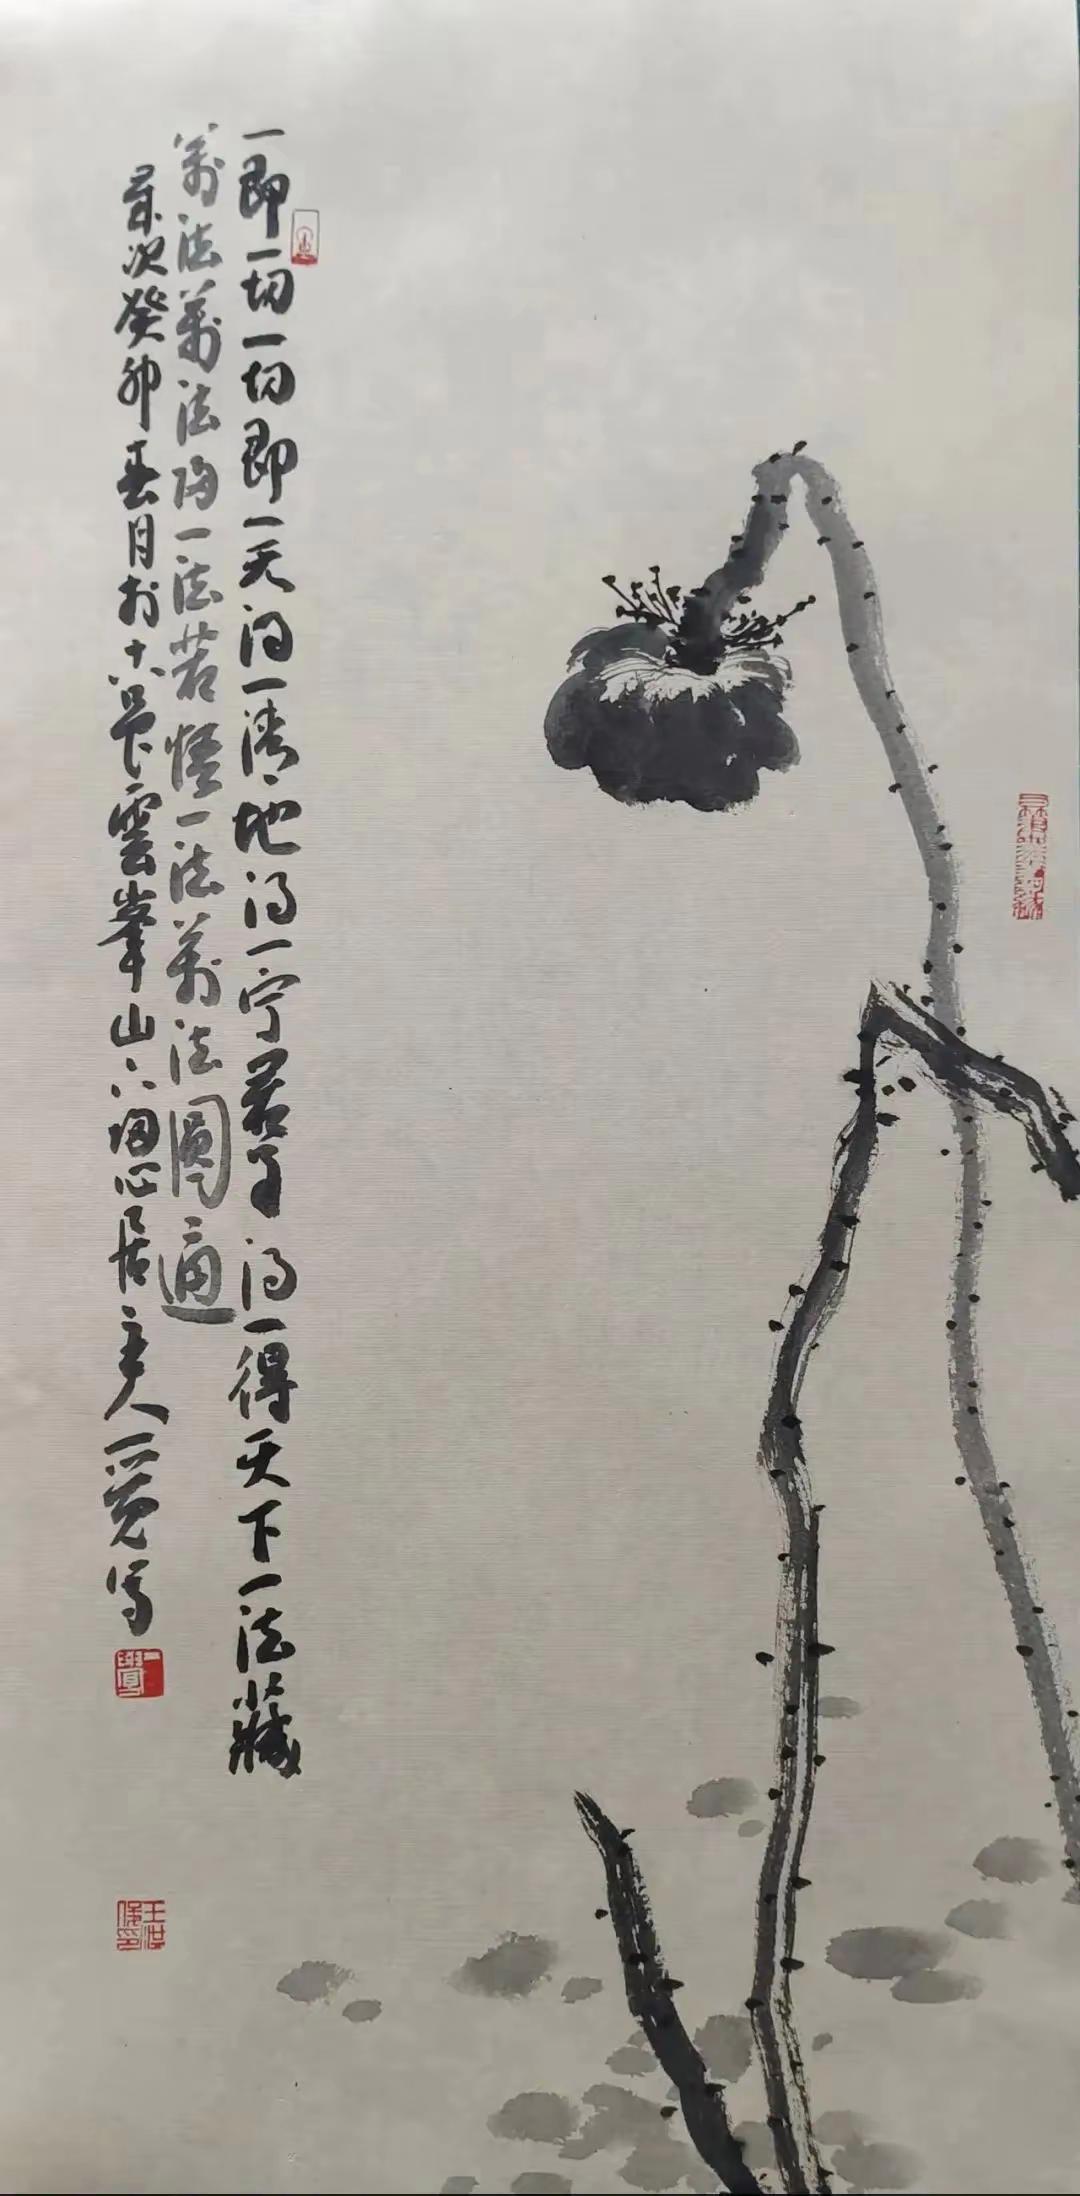 一即一切一切即一天得一清地得一宁君子得一得天下一法藏
萬法萬法归一法若悟一法萬法圓通
歲次癸卯春月於雲峯山下归心居主人一覺写